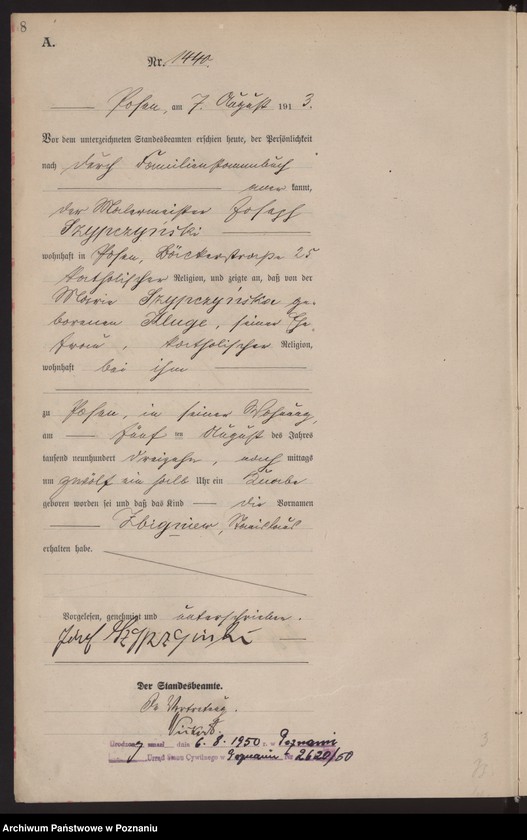 8
A.
Nr. 1440.
Posen, am 7. August 1913.
Vor dem unterzeichneten Standesbeamten erschien heute, der Persönlichkeit
nach durch Familienstammbuch
kannt,
der Malermeister Joseph
Szypczyński
wohnhaft in Posen, Bäckerstraße 25
katholischer Religion, und zeigte an, daß von der
Marie Szypczyńska ge-
borenen Kluge, seiner Ehe-
frau, katholischer Religion,
wohnhaft bei ihm
zu Posen, in seiner Wohnung,
am fünf ten August des Jahres
tausend neunhundert dreizehn, nach mittags
um zwölf ein halb Uhr ein Knabe
geboren worden sei und daß das Kind die Vornamen
Zbigniew, Stanislaus
erhalten habe.
Vorgelesen, genehmigt und unterschrieben.
Józef Szypczyński
Der Standesbeamte.
In Vertretung.
zmarł dnia 6. 8. 1950 r. w Poznaniu
Urząd Stanu Cywilnego w Poznaniu Nr 2620/50
Archiwum Państwowe w Poznaniu